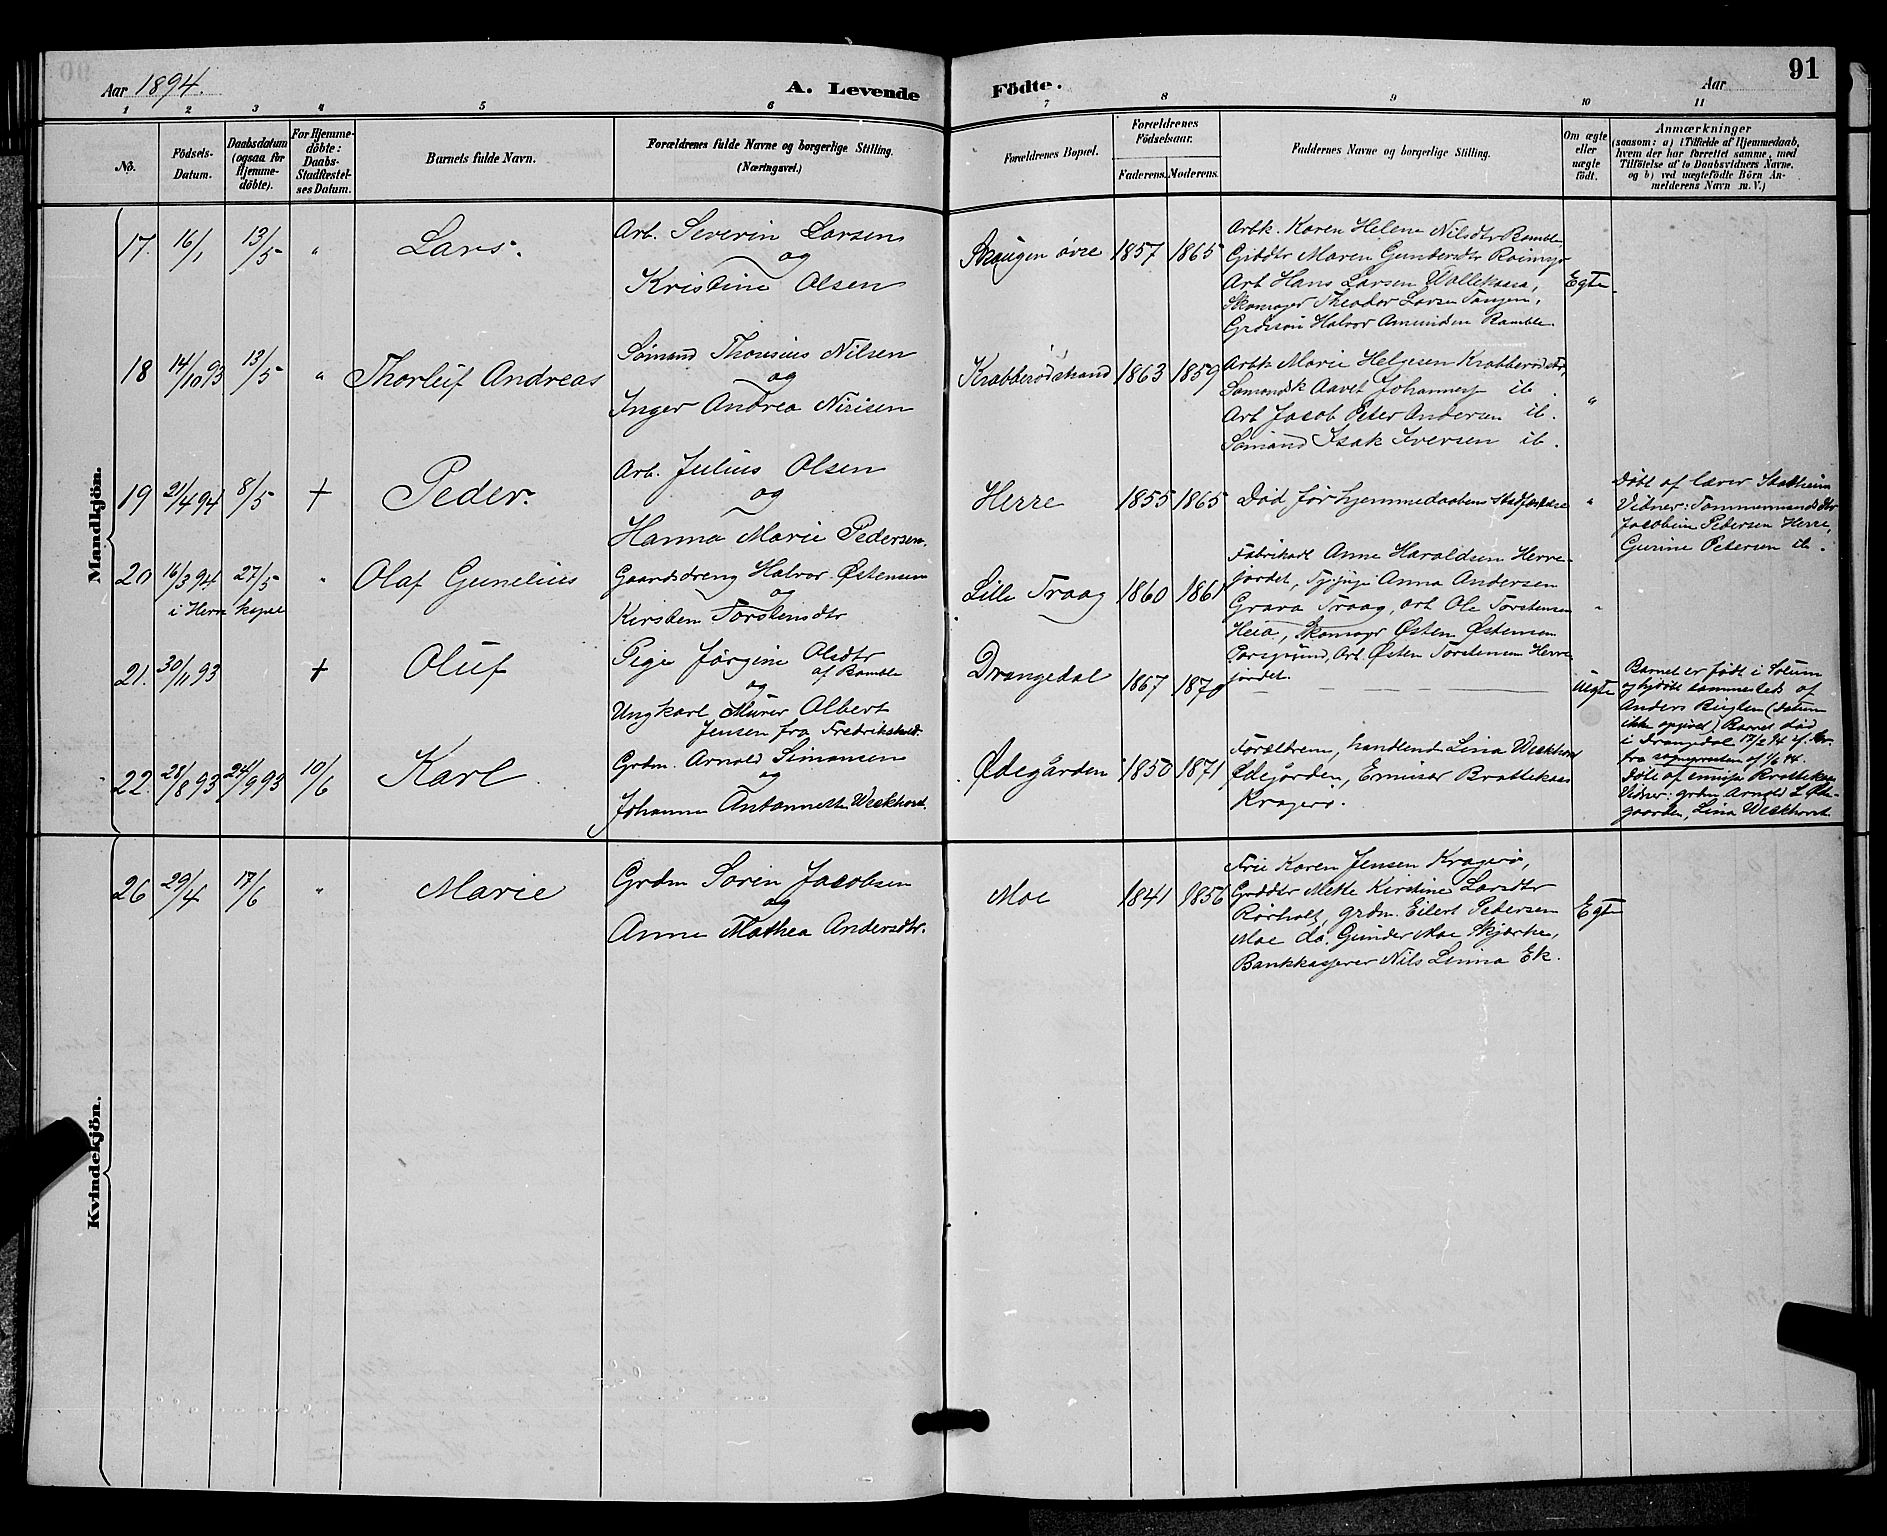 Aar 1894.
A. Levende Födte.
Aar
91
1 2 3 4 5 6 7 8 9 10 11
No.
Födsels-Datum.
Daabsdatum (ogsaa for Hjemme-döbte).
For Hjemme-döbte: Daabs-Stadfæstel-ses Datum.
Barnets fulde Navn.
Forældrenes fulde Navne og borgerlige Stilling.
(Næringsvei.)
Forældrenes Bopæl.
Forældrenes Födselsaar.
Faderens. Moderens.
Faddernes Navne og borgerlige Stilling.
Om ægte eller uægte födt.
Anmærkninger
(saasom: a) i Tilfælde af Hjemmedaab,
hvem der har forrettet samme, med
Tilföielse af to Daabsvidners Navne.
og b) ved uægtefödte Börn An-
melderens Navn m. V.)
Mandkjön.
17. 16/1 13/5 " Lars.
Arb. Severin Larsen
og
Kristine Olsen
Skougen øvre 1857 1865
Arbk. Karen Helene Nilsdtr Bamble
Gjddtr Maren Gundersdtr
Arb Hans Larsen Vallekaasa,
Skomager Theodor Larsen Tangen,
Grdsøn Halvor Amundsen Bamble.
Egte
18 14/10 93 13/5 " Thorleif Andreas
Sømand Thomius Nilsen
og
Inger Andrea Nirisen
Krabberødstrand 1863 1859
Arbk Marie Helgesen Krabberødstr,
Sømandsk Aavet Johannes ib.
Arb Jacob Peter Andersen ib.
Sømand Isak Iversen ib.
"
19 21/4 94 8/5 + Peder.
Arb. Julius Olsen
og
Hanna Marie Pedersen.
Herre 1855 1865
Død før hjemmedaabens Stadfæstelse
"
Døbt af lærer Stalheim
Vidner: Tømmermands
Jacobine Pedersen Herre,
Gurine Petersen ib.
20 16/3 94 27/5 " Olaf Gunelius
i Herre kapel
Gaardsdreng Halvor Østensen
og
Kirsten Torstensdtr
Lille Traag 1860 1861
Fabrikarb Anne Haraldsen Herre-
fjordet, Anna Andersen
Grava Traag, arb Ole Torstensen
Heia, Skomagr Østen Østensen
Porsgrund, Arb. Østen Torstensen Herre-
fjordet.
"
21. 30/11 93 + Oluf
Pige Jørgine Olsdtr
af Bamble
og
Ungkarl Murer Albert
Jensen fra Fredrikshald.
Drangedal 1867 1870
Uegte
Barnet er født i Solum
og hjdøbt sammesteds af
Anders (datum
ikke opgivet). Barnet død
i Drangedal 17/2 94 if. br.
fra sognepresten af 1/6 94.
22. 28/8 93 24/9 93 10/6 Karl
Grdm. Arnold Simonsen
og
Johanne Antonnette Weekhorst.
Ødegården 1850 1871
Forældrene, handlende Lina Weekhorst
Ødegården, Emisær Brattekaas
Kragerø.
Døbt af emisær Brattekaas
Vidner: grdm Arnold S. Øde-
gaarden, Lina Weekhorst
Kvindekjön.
26 29/4 17/6 " Marie
Grdm Søren Jacobsen
og
Anne Mathea Andersdtr.
Moe 1841 1856
Frie Karen Jensen Kragerø,
Grddtr Mette Kirstine Larsdtr
Rørholt, grdm. Eilert Pedersen
Moe do. Gunder Moe Skjærke,
Bankkasjerer Nils Linna Ek.
Egte